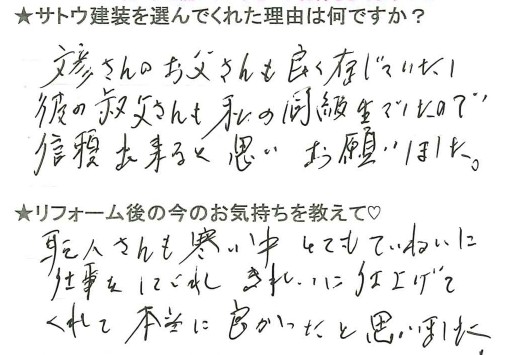 ★サトウ建装を選んでくれた理由は何ですか？
文彦さんのお父さんも良く存じていたし
彼の叔父さんも私の同級生でしたので
信頼出来ると思い お願いしました。
★リフォーム後の今のお気持ちを教えて♡
職人さんも寒い中 とてもていねいに
仕事をしてくれ きれいに仕上げて
くれて本当に良かったと思いました。